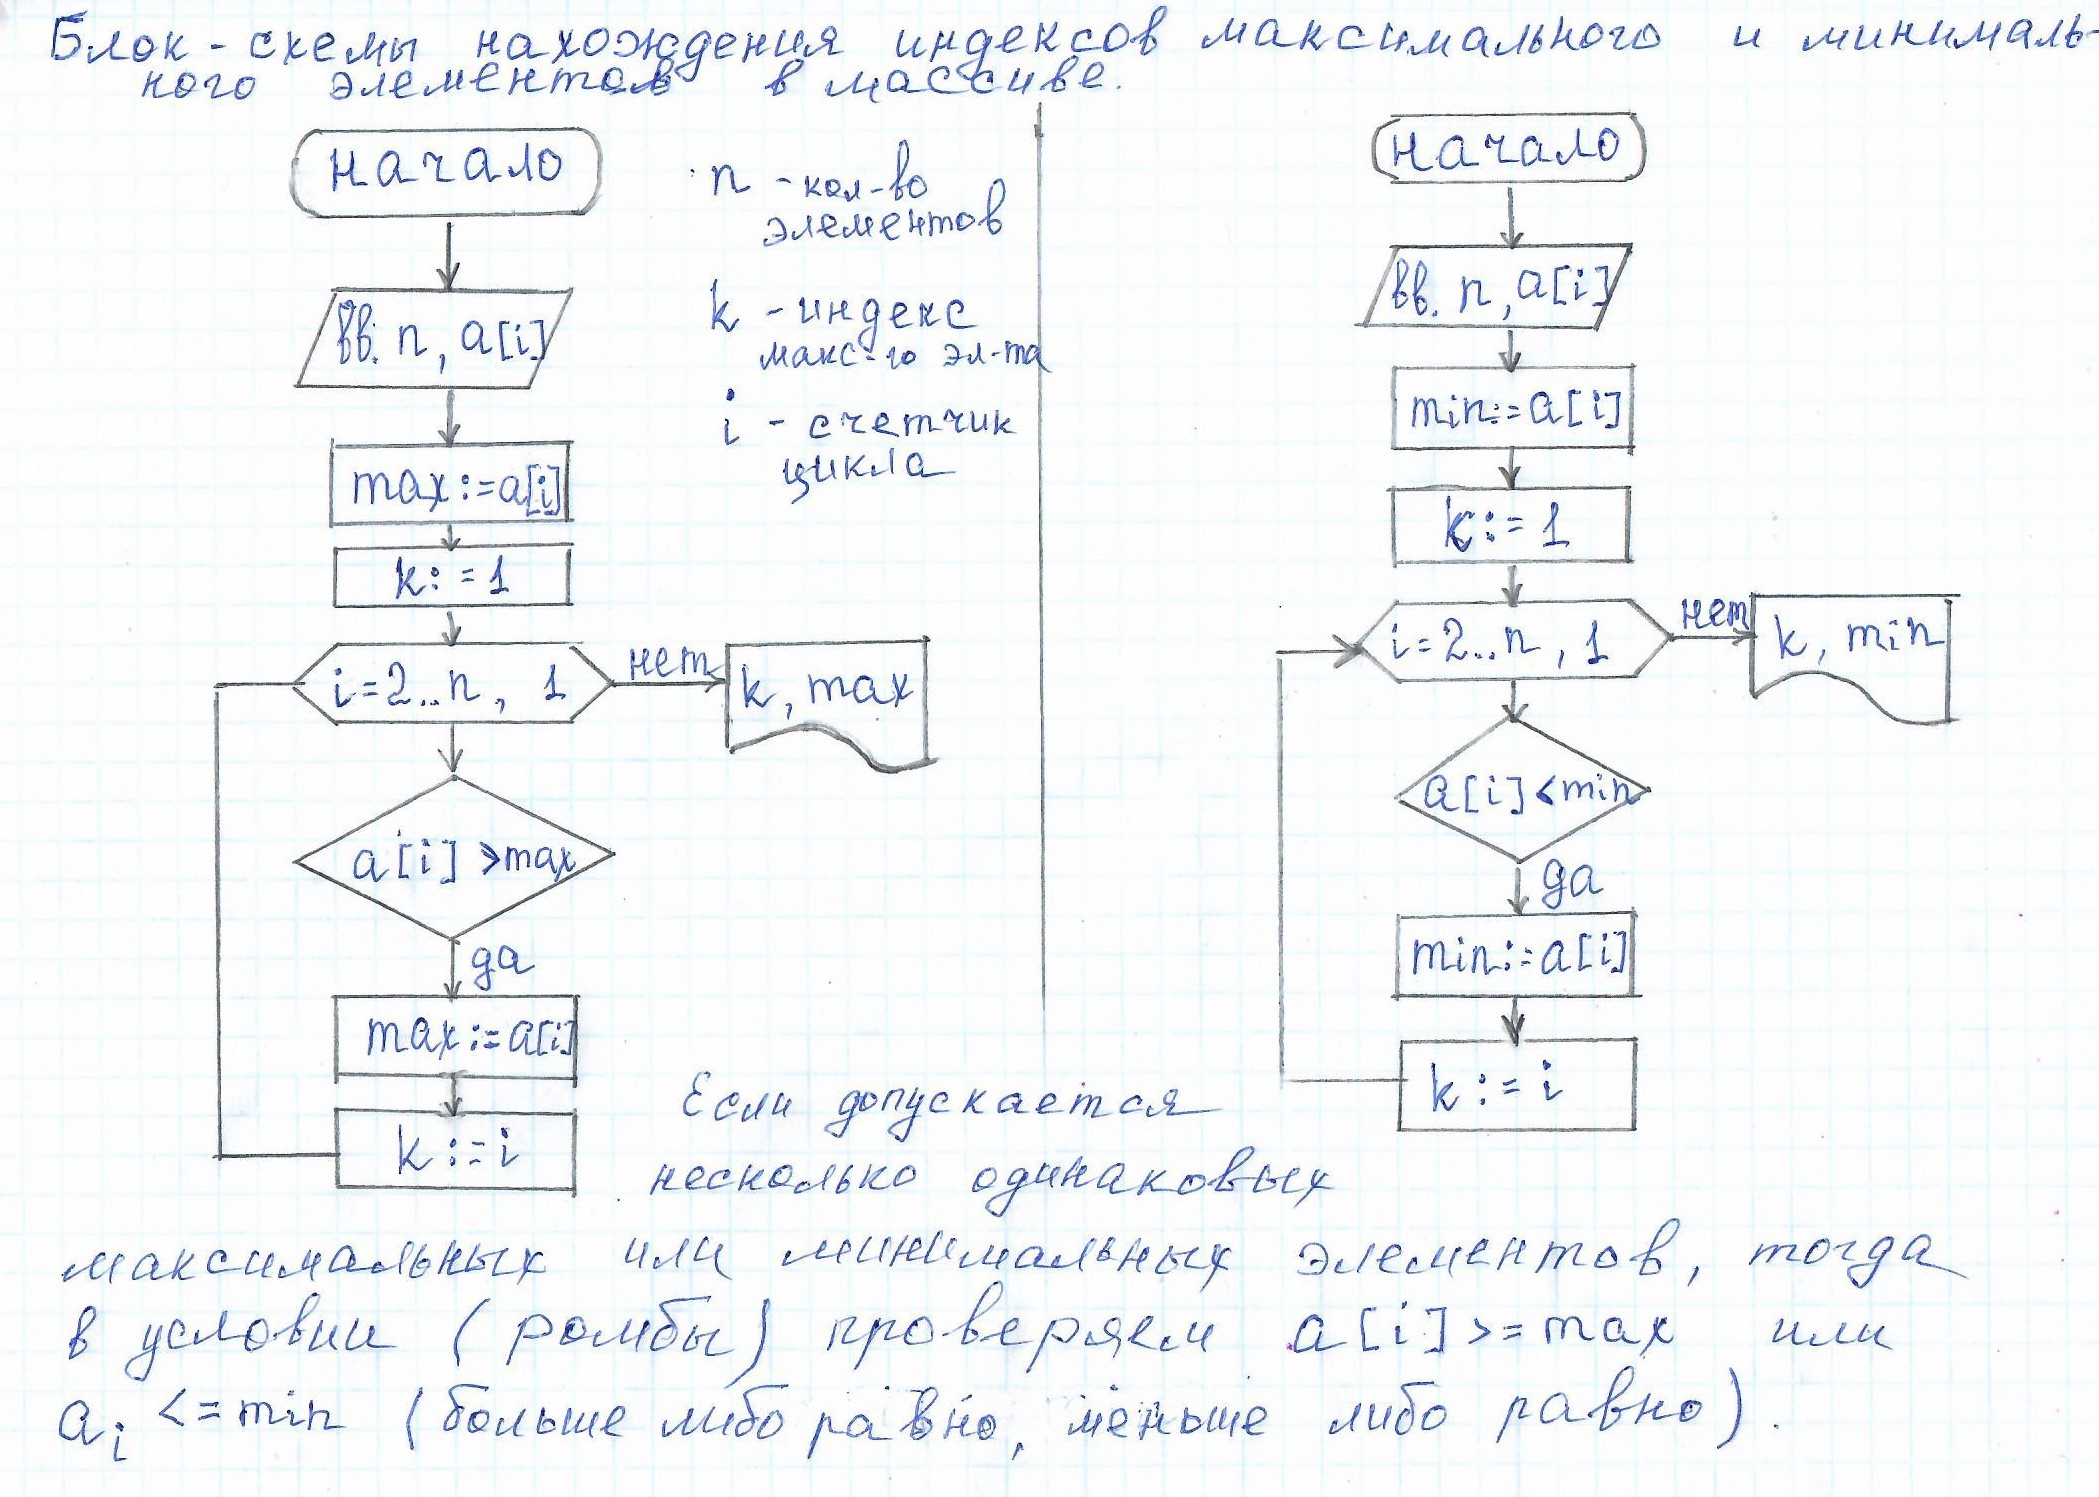 Блок-схемы нахождения индексов максимального и минималь-
ного элементов в массиве.
начало
вв. n, a[i]
max:=a[i]
k:=1
i=2..n, 1
нет
k, max
a[i] >max
да
max:=a[i]
k:=i
n - кол-во
элементов
k - индекс
макс-го эл-та
i - счетчик
цикла
начало
вв. n, a[i]
min:=a[i]
k:=1
i=2..n, 1
нет
k, min
a[i]<min
да
min:=a[i]
k:=i
Если допускается
несколько одинаковых
максимальных или минимальных элементов, тогда
в условии (ромбы) проверяем a[i]>=max или
ai <=min (больше либо равно, меньше либо равно).